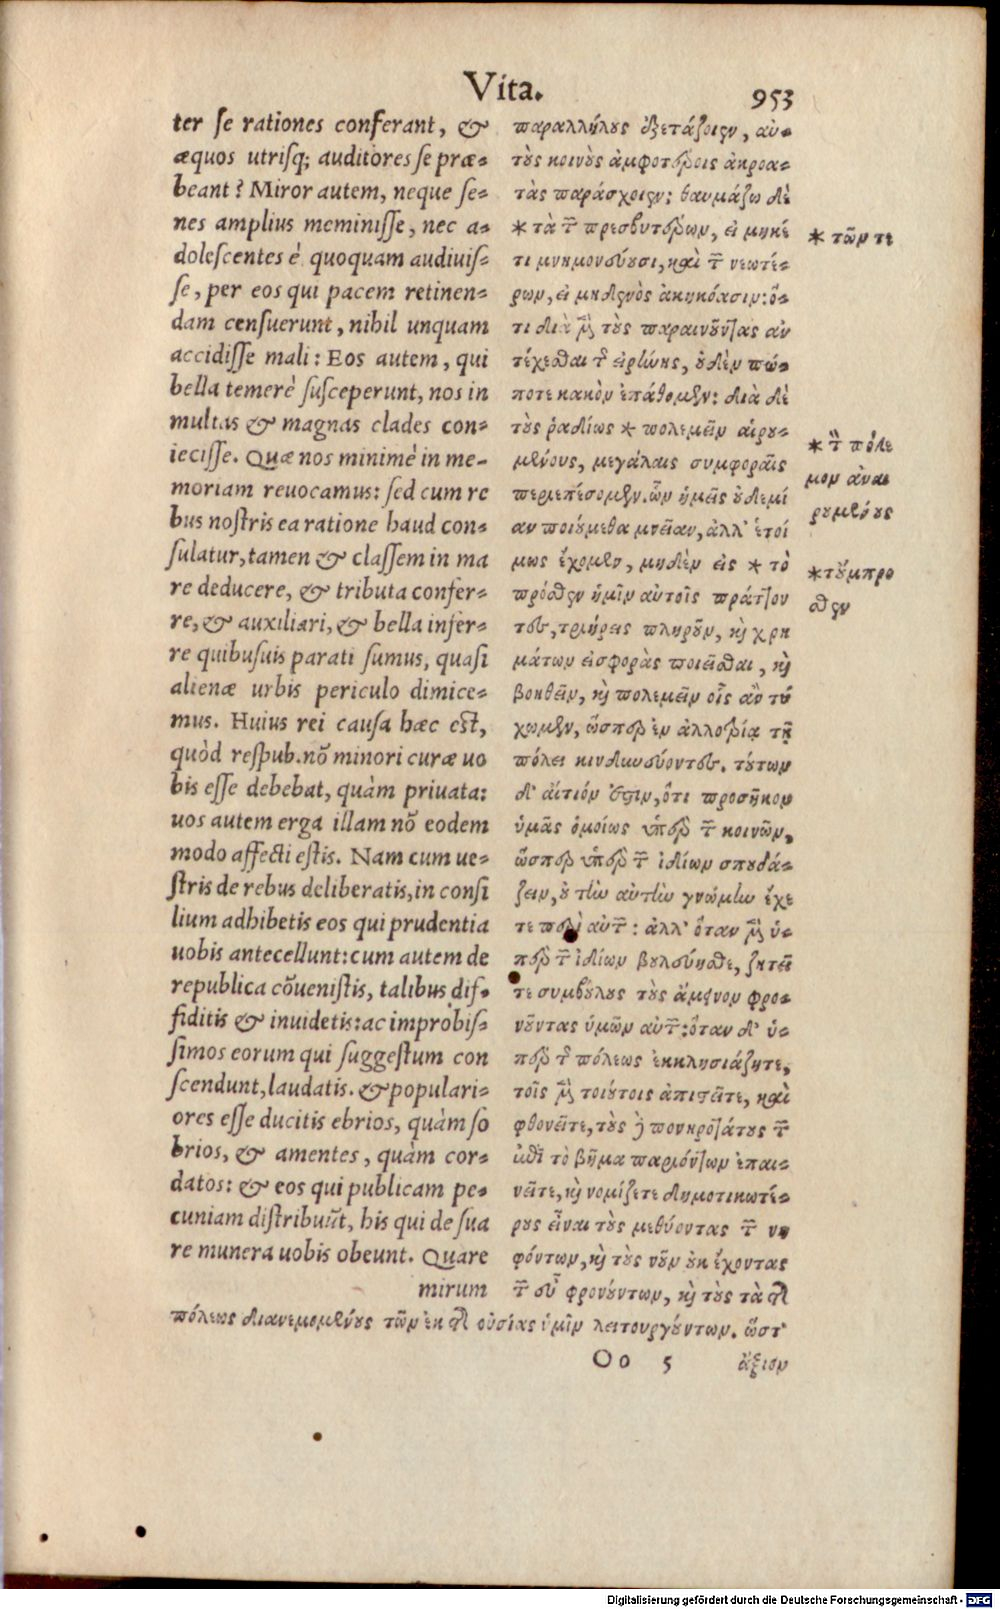 Vita.
953
ter se rationes conferant, &
æquos utrisq; auditores se præ-
beant? Miror autem, neque se-
nes amplius meminisse, nec a-
dolescentes è quoquam audiuis-
se, per eos qui pacem retinen-
dam censuerunt, nihil unquam
accidisse mali: Eos autem, qui
bella temerè susceperunt, nos in
multas & magnas clades con-
iecisse. Quæ nos minimè in me-
moriam reuocamus: sed cum re
bus nostris ea ratione haud con-
sulatur, tamen & classem in ma
re deducere, & tributa confer-
re, & auxiliari, & bella infer-
re quibusuis parati sumus, quasi
alienæ urbis periculo dimice-
mus. Huius rei causa hæc est,
quòd respub. nō minori curæ uo
bis esse debebat, quàm priuata:
uos autem erga illam nō eodem
modo affecti estis. Nam cum ue-
stris de rebus deliberatis, in consi
lium adhibetis eos qui prudentia
uobis antecellunt: cum autem de
republica cōuenistis, talibus dif-
fiditis & inuidetis: ac improbis-
simos eorum qui suggestum con
scendunt, laudatis. & populari-
ores esse ducitis ebrios, quàm so
brios, & amentes, quàm cor-
datos: & eos qui publicam pe-
cuniam distribuūt, his qui de sua
re munera uobis obeunt. Quare
mirum
παραλλήλους ἐξετάζοιεν, αὑ-
τοὺς κοινοὺς ἀμφοτέροις ἀκροα-
τὰς παράσχοιεν: θαυμάζω δὲ
* τὰ τῶν πρεσβυτέρων, εἰ μηκέ
τι μνημονεύουσι, καὶ τῶν νεωτέ-
ρων, εἰ μηδενὸς ἀκηκόασιν: ὅ-
τι διὰ μὲν τοὺς παραινοῦντας ἀν
τέχεσθαι τῆς εἰρήνης, οὐδὲν πώ-
ποτε κακὸν ἐπάθομεν: διὰ δὲ
τοὺς ῥαδίως * πολεμεῖν αἱρου-
μένους, μεγάλαις συμφοραῖς
περιεπέσομεν. ὧν ἡμεῖς οὐδεμί
αν ποιούμεθα μνείαν, ἀλλ' ἑτοί
μως ἔχομεν, μηδὲν εἰς * τὸ
πρόσθεν ἡμῖν αὐτοῖς πράττον
τες, τριήρεις πληροῦν, καὶ χρη
μάτων εἰσφορὰς ποιεῖσθαι, καὶ
βοηθεῖν, καὶ πολεμεῖν οἷς ἂν τύ
χωμεν, ὥσπερ ἐν ἀλλοτρίᾳ τῇ
πόλει κινδυνεύοντες. τούτων
δ' αἴτιόν ἐστιν, ὅτι προσῆκον
ὑμᾶς ὁμοίως ὑπὲρ τῶν κοινῶν,
ὥσπερ ὑπὲρ τῶν ἰδίων σπουδά-
ζειν, οὐ τὴν αὐτὴν γνώμην ἔχε
τε περὶ αὐτῶν: ἀλλ' ὅταν μὲν ὑ-
πὲρ τῶν ἰδίων βουλεύησθε, ζητεῖ
τε συμβούλους τοὺς ἄμεινον φρο-
νοῦντας ὑμῶν αὐτῶν: ὅταν δ' ὑ-
πὲρ τῆς πόλεως ἐκκλησιάζητε,
τοῖς μὲν τοιούτοις ἀπιστεῖτε, καὶ
φθονεῖτε, τοὺς δὲ πονηροτάτους τῶν
ἐπὶ τὸ βῆμα παριόντων ἐπαι-
νεῖτε, καὶ νομίζετε δημοτικωτέ-
ρους εἶναι τοὺς μεθύοντας τῶν νη
φόντων, καὶ τοὺς νοῦν οὐκ ἔχοντας
τῶν εὖ φρονούντων, καὶ τοὺς τὰ τῆς
πόλεως διανεμομένους τῶν ἐκ τῆς οὐσίας ὑμῖν λειτουργούντων. ὥστ'
* τῶν τε
* τὸν πόλε
μον ἀναι
ρουμένους
* τοὔμπρο
σθεν
Oo 5
ἄξιον
Digitalisierung gefördert durch die Deutsche Forschungsgemeinschaft - DFG